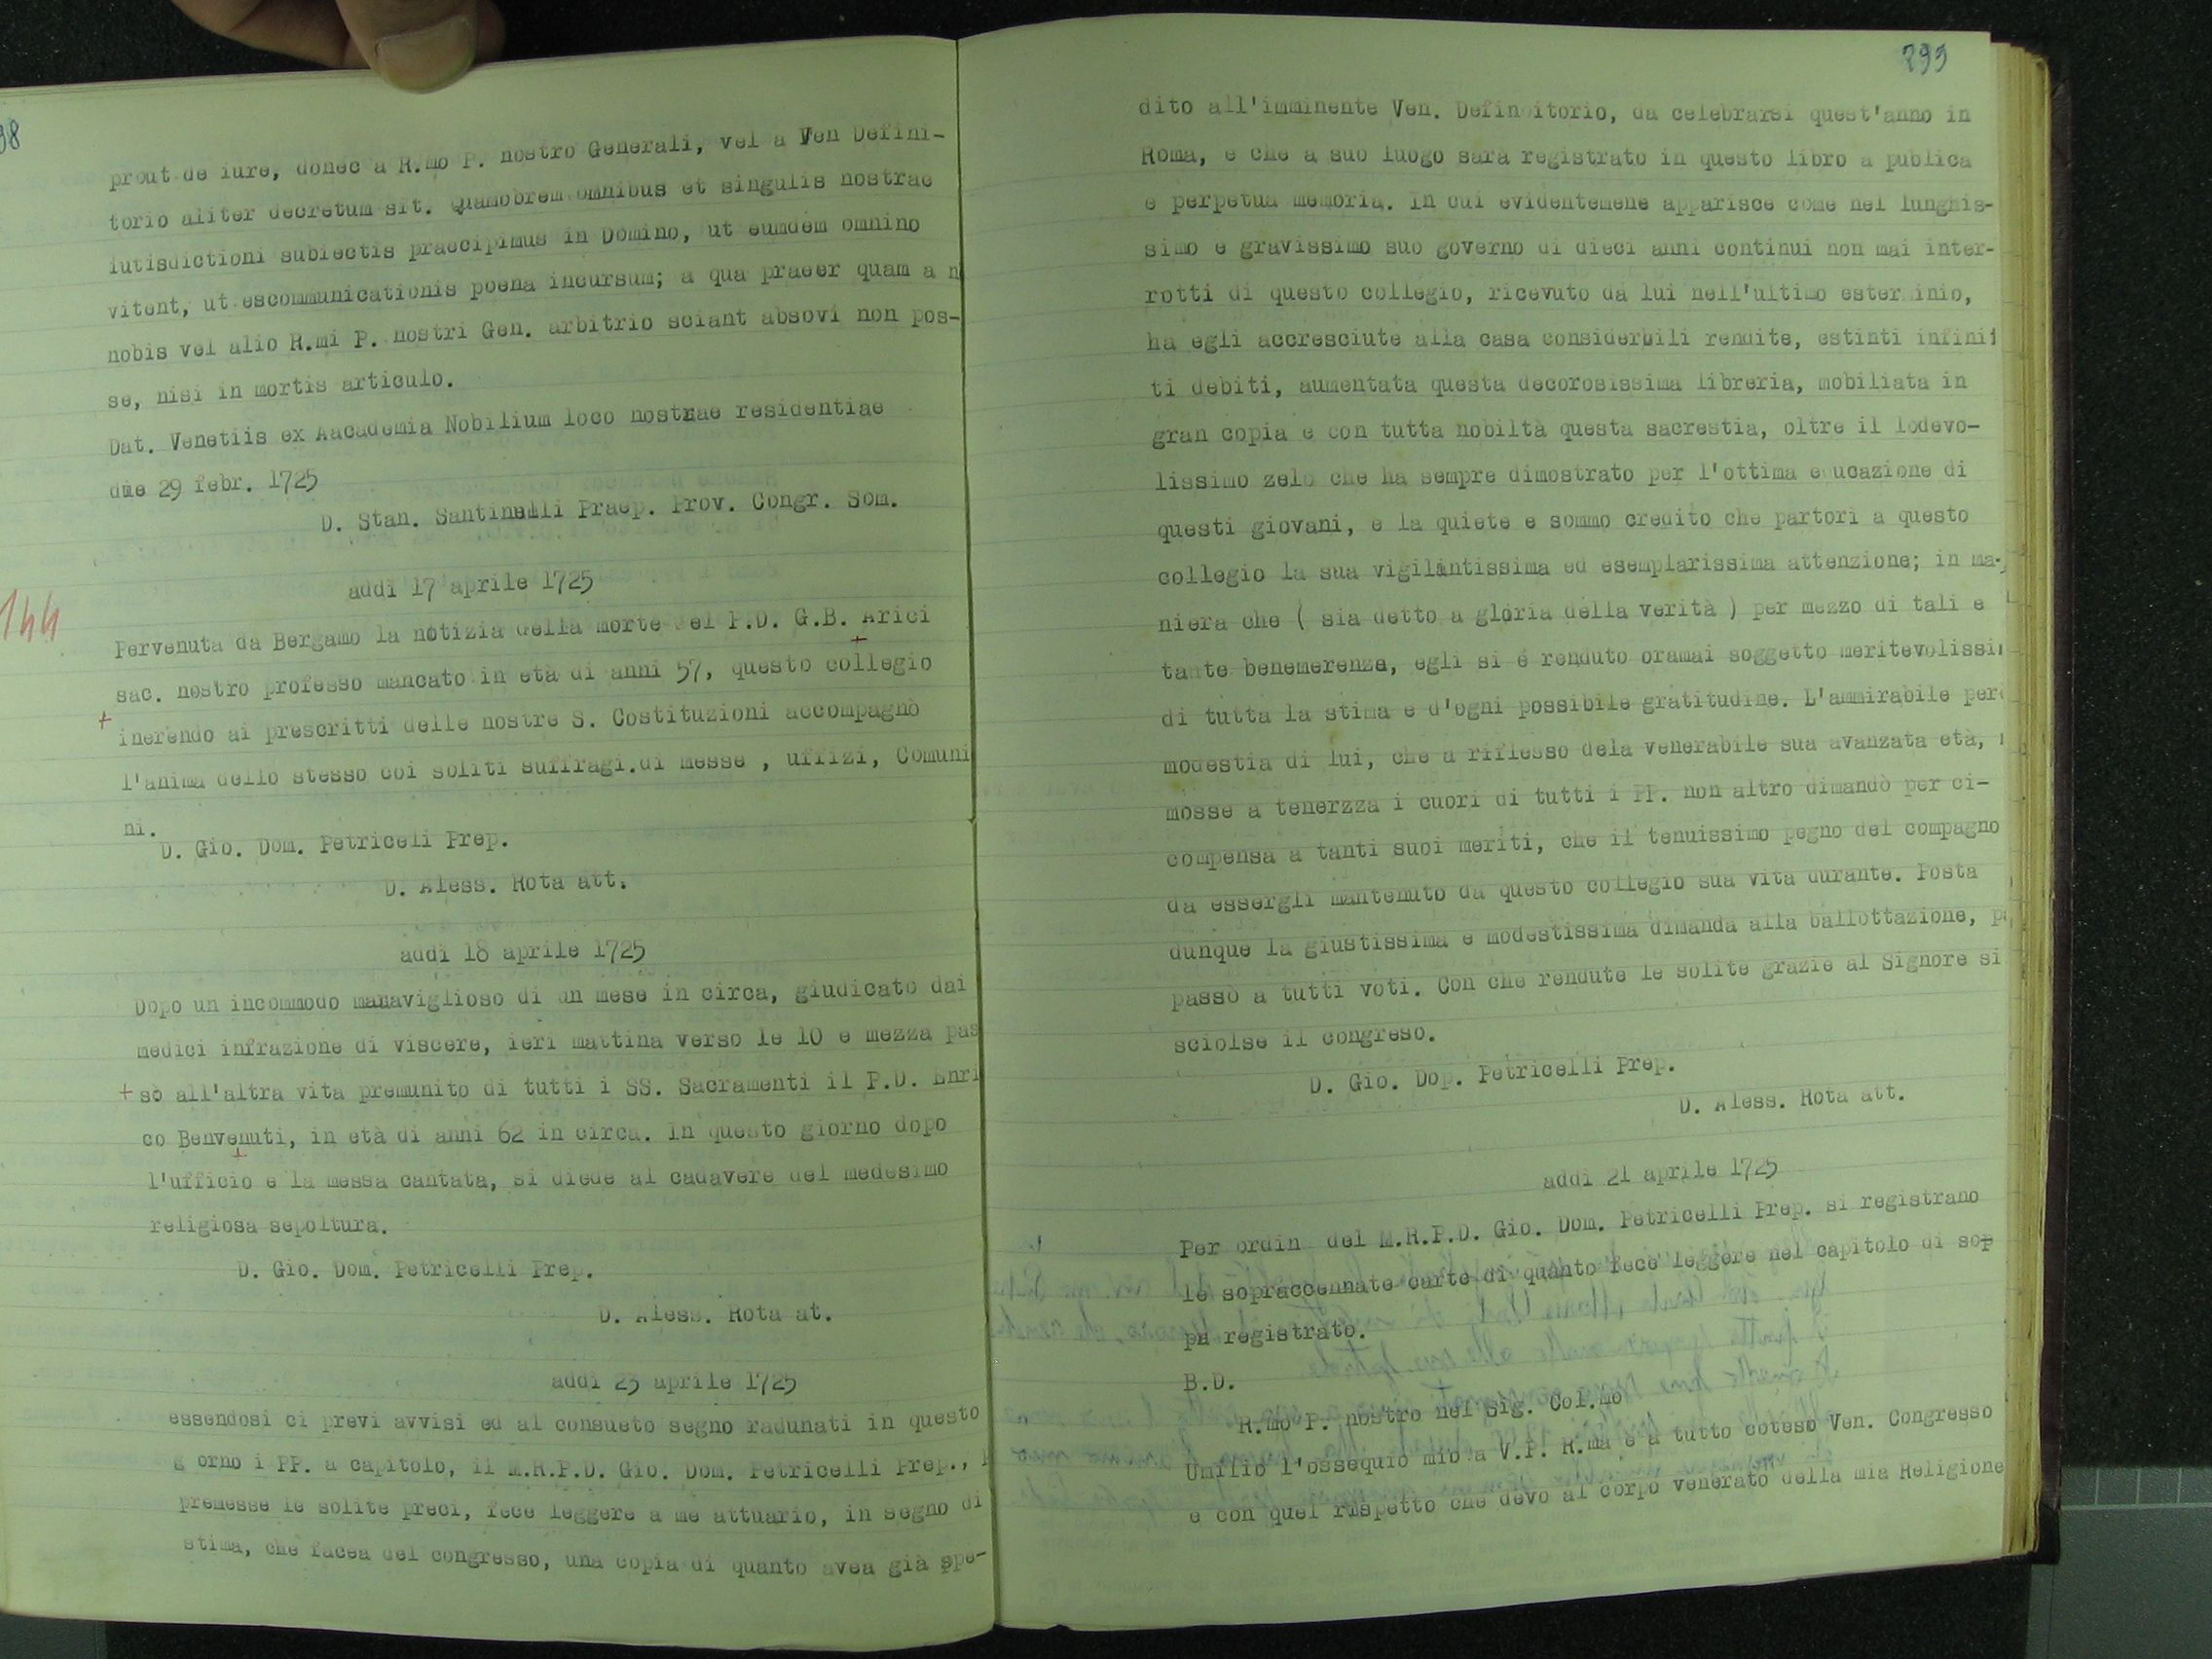 98
prout de iure, donec a R.mo P. nostro Generali, vel a Ven Defini-
torio aliter decretum sit. Quamobrem omnibus et singulis nostrae
iutisdictioni subiectis praecipimus in Domino, ut eumdem omnino
vitent, ut escommunicationis poena incursum; a qua praeer quam a n
nobis vel alio R.mi P. nostri Gen. arbitrio sciant absovi non pos-
se, nisi in mortis articulo.
Dat. Venetiis ex Aacademia Nobilium loco nostrae residentiae
die 29 febr. 1725
D. Stan. Santinelli Praep. Prov. Congr. Som.
addì 17 aprile 1725
144
Pervenuta da Bergamo la notizia della morte del P.D. G.B. Arici
sac. nostro professo mancato in età di anni 57, questo collegio
+ inerendo ai prescritti delle nostre S. Costituzioni accompagnò
l'anima dello stesso coi soliti suffragi.di messe , uffizi, Comuni
ni.
D. Gio. Dom. Petriceli Prep.
D. Aless. Rota att.
addì 18 aprile 1725
Dopo un incommodo maraviglioso di un mese in circa, giudicato dai
medici infrazione di viscere, ieri mattina verso le 10 e mezza pas
+ sò all'altra vita premunito di tutti i SS. Sacramenti il P.D. Enri
co Benvenuti, in età di anni 62 in circa. In questo giorno dopo
l'ufficio e la messa cantata, si diede al cadavere del medesimo
religiosa sepoltura.
D. Gio. Dom. Petricelli Prep.
D. Aless. Rota at.
addì 23 aprile 1725
essendosi ci previ avvisi ed al consueto segno radunati in questo
g orno i PP. a capitolo, il M.R.P.D. Gio. Dom. Petricelli Prep.,
premesse le solite preci, fece leggere a me attuario, in segno di
stima, che facea del congresso, una copia di quanto avea già spe-
299
dito all'imminente Ven. Definitorio, da celebrarsi quest'anno in
Roma, e che a suo luogo sarà registrato in questo libro a publica
e perpetua memoria. In cui evidentemene apparisce come nel lunghis-
simo e gravissimo suo governo di dieci anni continui non mai inter-
rotti di questo collegio, ricevuto da lui nell'ultimo esterminio,
ha egli accresciute alla casa considerbili rendite, estinti infinit
ti debiti, aumentata questa decorosissima libreria, mobiliata in
gran copia e con tutta nobiltà questa sacrestia, oltre il lodevo-
lissimo zelo che ha sempre dimostrato per l'ottima e ucazione di
questi giovani, e la quiete e sommo credito che partorì a questo
collegio la sua vigilantissima ed esemplarissima attenzione; in ma-
niera che ( sia detto a gloria della verità ) per mezzo di tali e
tante benemerenze, egli si é renduto oramai soggetto meritevolissi
di tutta la stima e d'ogni possibile gratitudine. L'ammirabile però
modestia di lui, che a riflesso dela venerabile sua avanzata età,
mosse a tenerzza i cuori di tutti i PP. non altro dimandò per ci-
compensa a tanti suoi meriti, che il tenuissimo pegno del compagno
da essergli mantenuto da questo collegio sua vita durante. Posta
dunque la giustissima e modestissima dimanda alla ballottazione, p
passò a tutti voti. Con che rendute le solite grazie al Signore si
sciolse il congreso.
D. Gio. Dop. Petricelli Prep.
D. Aless. Rota att.
addì 21 aprile 1725
Per ordin del M.R.P.D. Gio. Dom. Petricelli Prep. si registrano
le sopraccennate carte di quanto fece leggere nel capitolo di sop
pa registrato.
B.D.
R.mo P. nostro nel Sig. Col.mo
Umilio l'ossequio mio a V.P. R.ma e a tutto coteso Ven. Congresso
e con quel rispetto che devo al corpo venerato della mia Religione